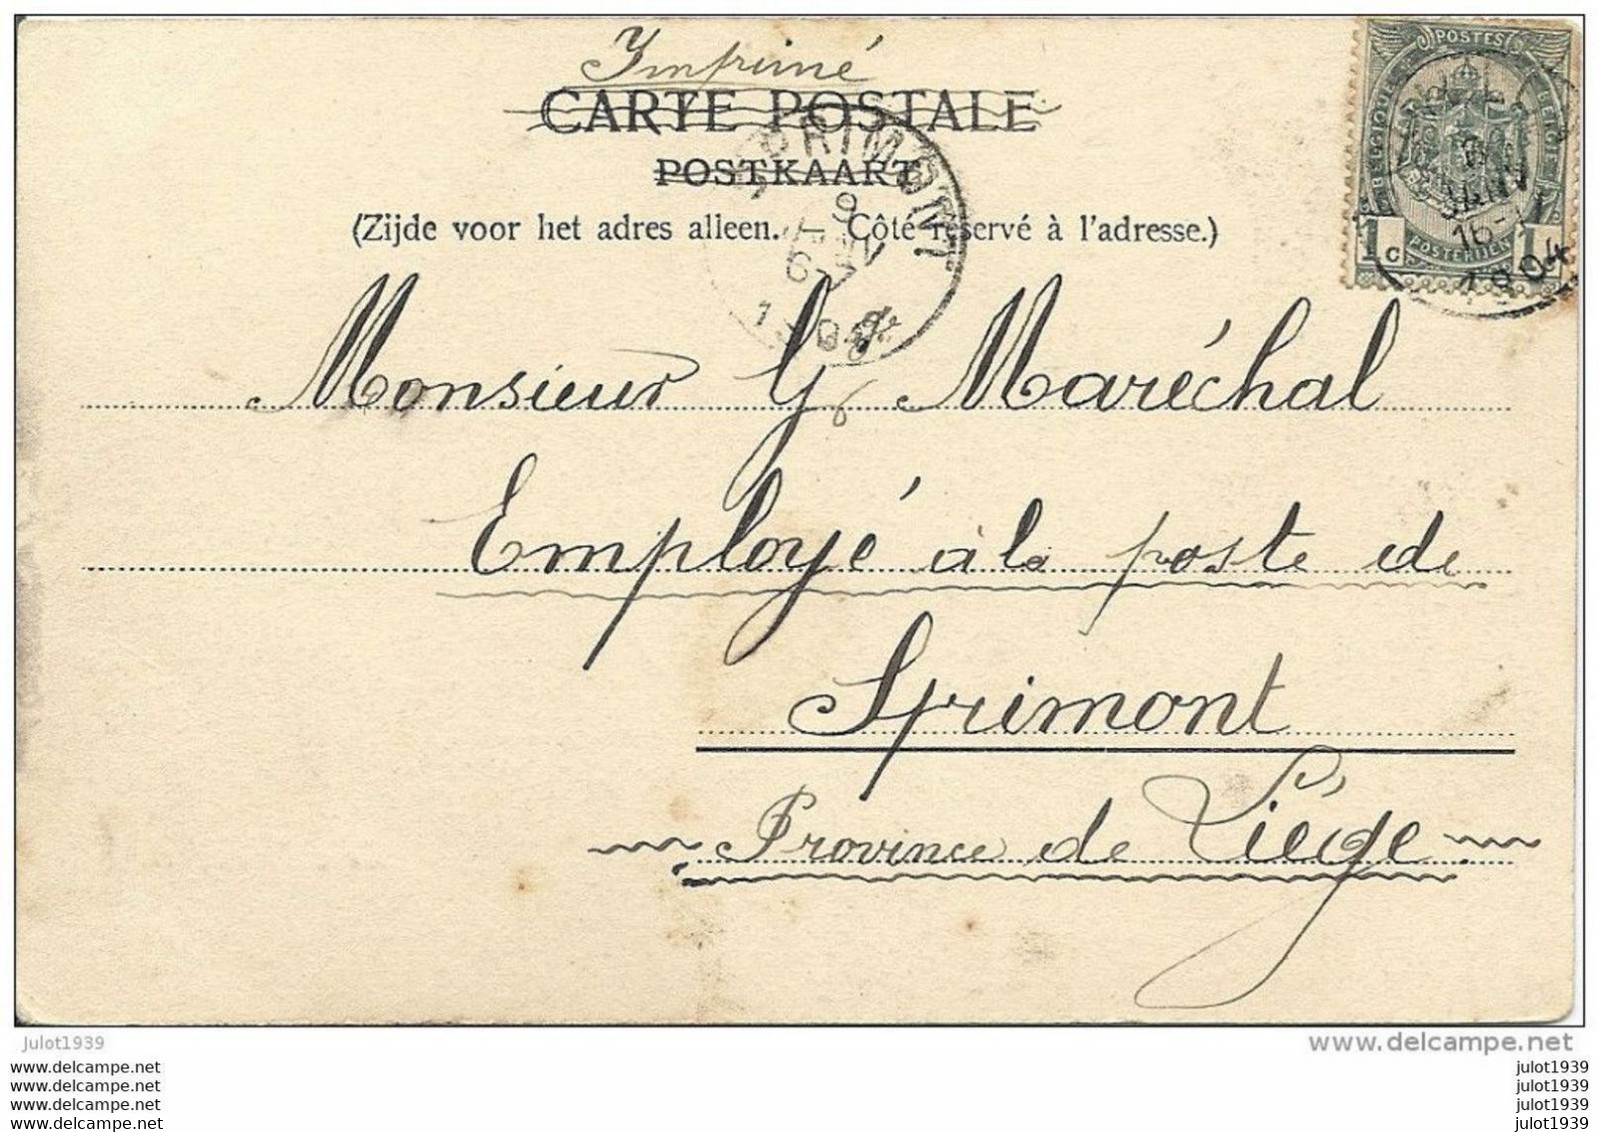 Imprimé
CARTE POSTALE
POSTKAART
(Zijde voor het adres alleen. — Côté réservé à l'adresse.)
SPRIMONT
9
JANV
6-7
1904
POSTES
BELGIQUE BELGIË
POSTERIJEN
1c 1c
8
JANV
16-
1904
Monsieur G Maréchal
Employé à la poste de
Sprimont
Province de Liége
julot1939
www.delcampe.net
www.delcampe.net
www.delcampe.net
www.delcampe.net
www.delcampe.net
julot1939
julot1939
julot1939
julot1939